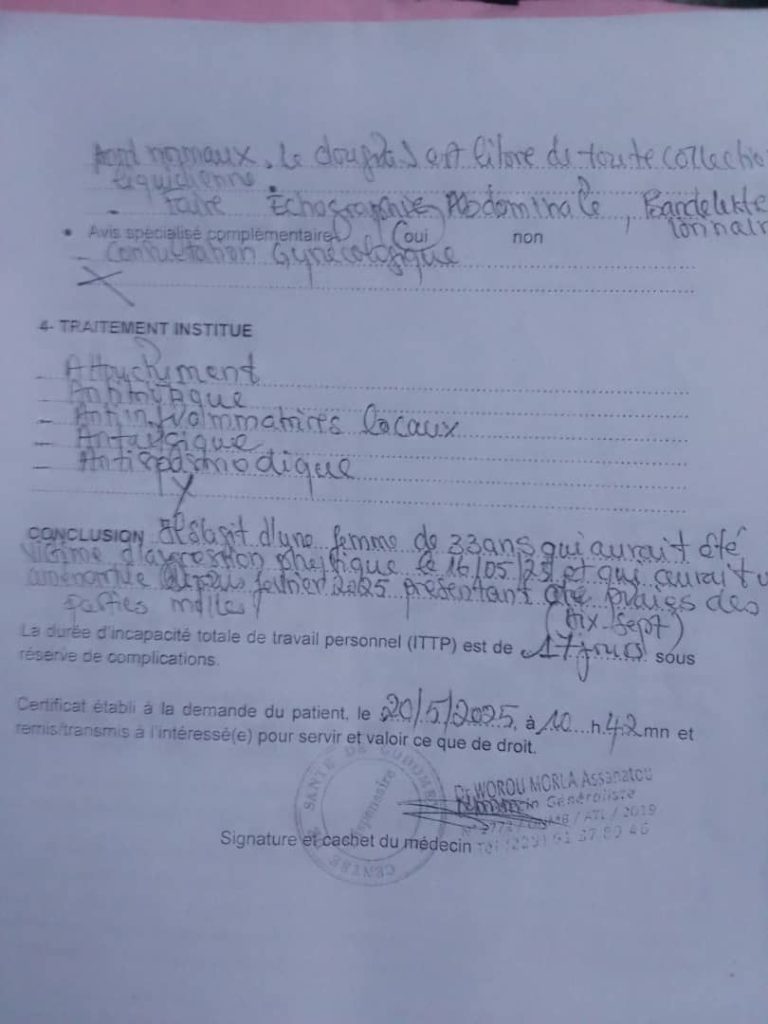 normaux. Le douglas est libre de toute collectio
liquidienne.
- Faire Échographie Abdominale, Bandelette
• Avis spécialisé complémentaire oui non
- Consultation Gynécologique
4- TRAITEMENT INSTITUE
-
-
- Antiinflammatoires locaux
- Antalgique
- Antispasmodique
CONCLUSION Il s'agit d'une femme de 33 ans qui aurait été
victime d'agression physique le 16/05/25 et qui aurait
depuis février 2025 présentant des
parties molles
(Dix-Sept)
La durée d'incapacité totale de travail personnel (ITTP) est de 17 jours sous
réserve de complications.
Certificat établi à la demande du patient, le 20/5/2025, à 10 h 42 mn et
remis/transmis à l'intéressé(e) pour servir et valoir ce que de droit.
CENTRE DE SANTE DE
Dispensaire
Dr WOROU MORLA Assanatou
Médecin Généraliste
Signature et cachet du médecin